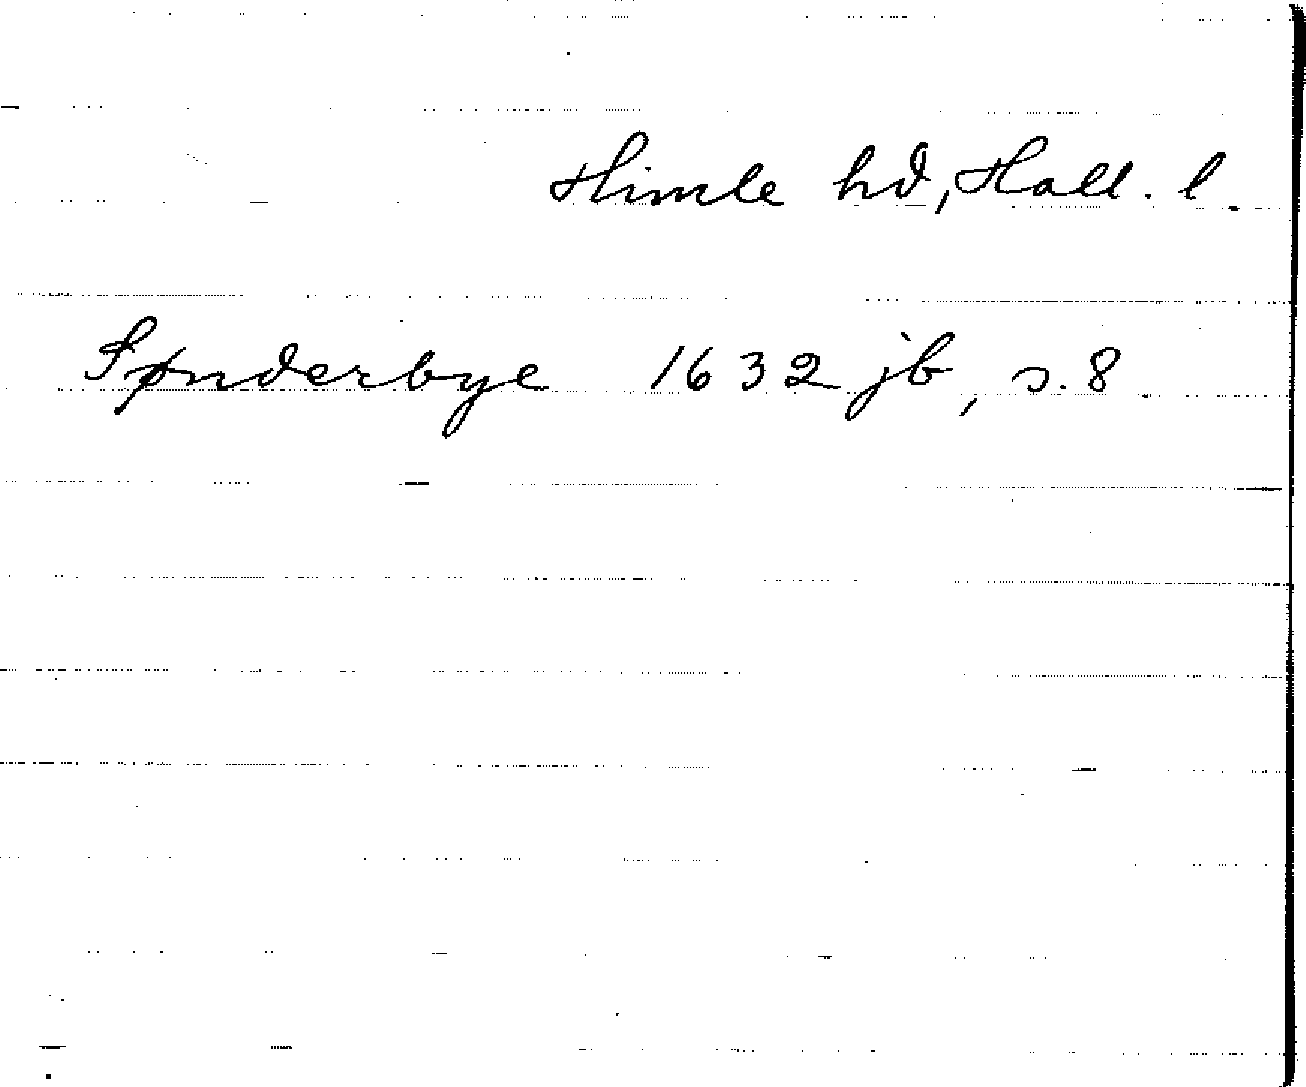 Himle hd, Hall. l.
Sønderbye 1632 jb, s. 8